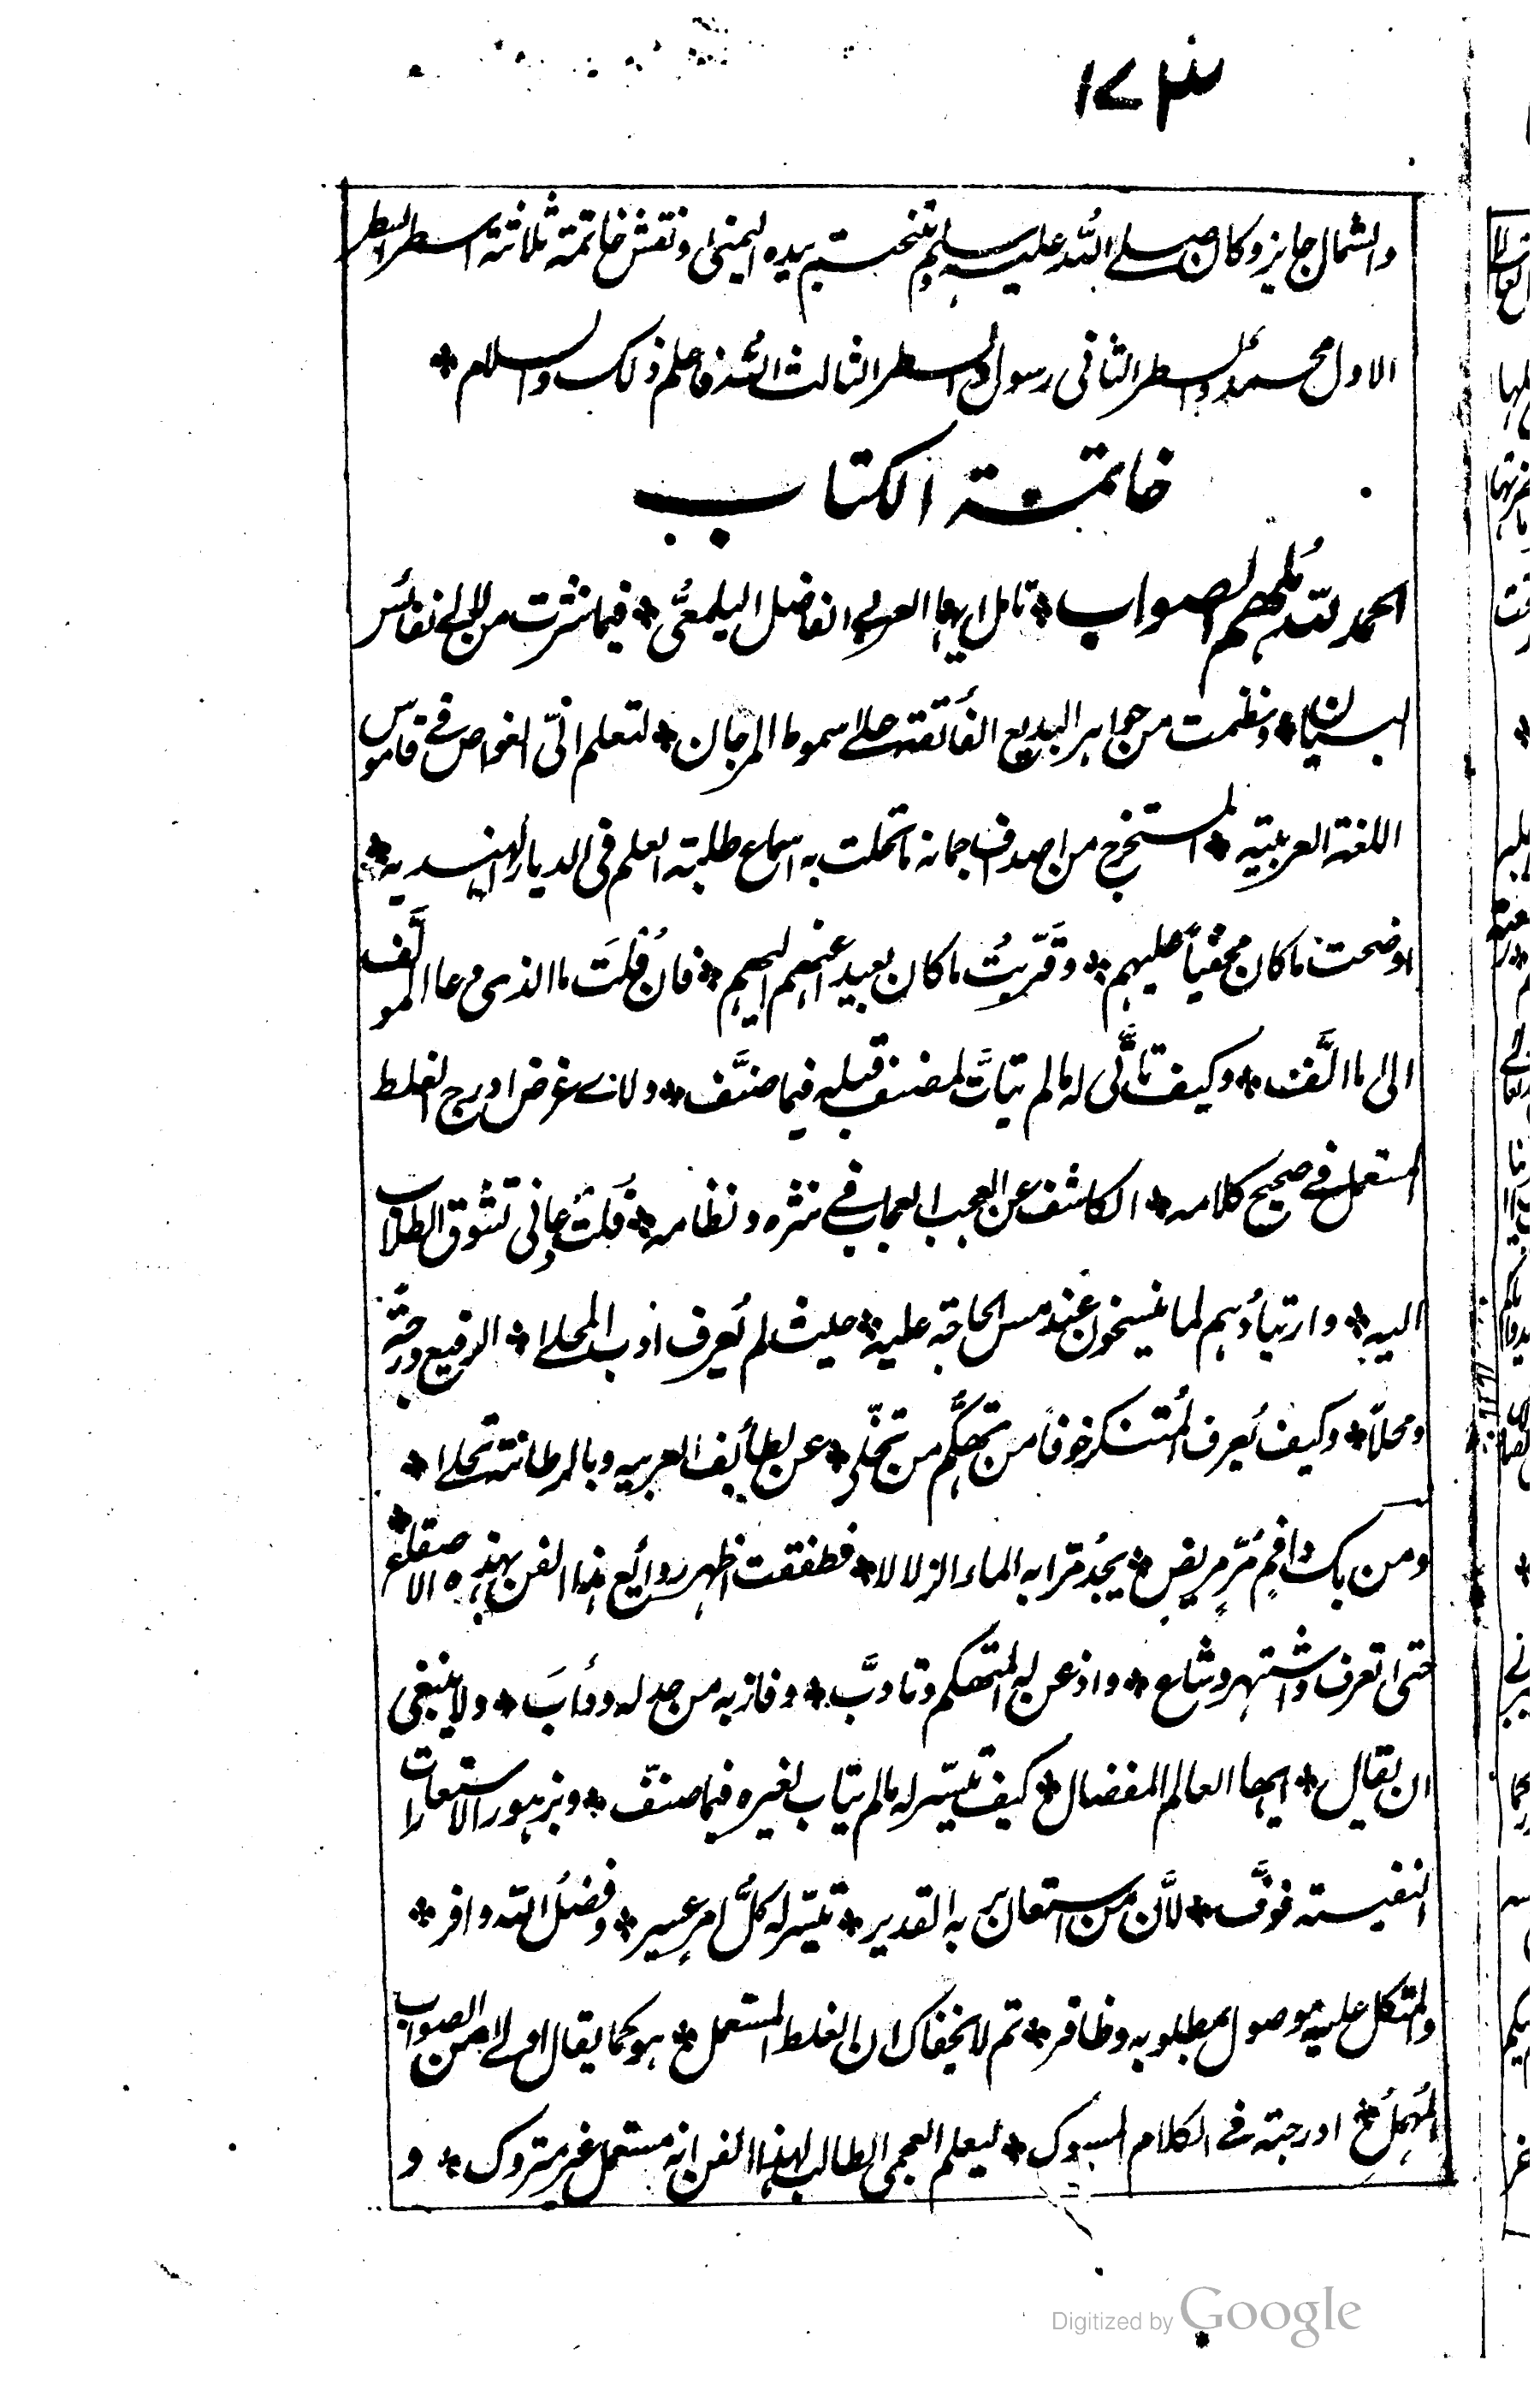 ١٧٣
والشمال جايز وكان صلے اللہ عليہ وسلم يتختم بيده اليمنى ونقش خاتمة ثلاثة اسطر السطر
الاول محمد والسطر الثانى رسول والسطر الثالث اللہ فاعلم ذلك والسلام *
خاتمة الكتاب
الحمد للہ مُلہم الصواب * تامل ايہا العربي الفاضل اليلمعىّ * فيما نثرت من لآلے نفائس
البيان * ونظمت من جواہر البديع الفائقة علے سموط المرجان * لتعلم انّى الغواص فے قاموس
اللغة العربيّة * المستخرج من اصداف جمانه ما تحلت به اسماع طلبة العلم فى الديار الہنديه *
اوضحت ما كان مخفياً عليہم * وقَرّبتُ ما كان بعيد اعنہم اليہم * فان قُلتَ ما الذى دعا المولَّف
الى ما الَّف * وكيف تاتَّى له ما لم يتاتَّ لمصنف قبله فيما صنَّف * ولاے غرض ادرج الغلط
المستعمل فے صحيح كلامه * الكاشف عن العجب العجاب فے نثره ونظامه * قُلتُ دعانى تشوق الطلاب
اليه * وارتيادُہم لما ينسخون عند مس الحاجة عليه * حيث لم يُعرف ادب المحلے * الرفيع درجةً
ومحلّا * وكيف يُعرف المُتنكر خوفاً من تہكُّم من تخلّى * عن لطائف العربيه وبالرطانة تحلے *
ومن يك ذا فمٍ مُرّ مريض * يجدُ مرّا به الماء الزلالا * فطفقت اظہر روائع ہذا الفن بہذه الاصقاع *
حتى اتعرف واشتہر وشاع * واذعن له المتہكم وتادَّب * وفاز به من جد له ودأبَ * ولا ينبغى
ان يقال * ايہا العالم المفضال * كيف تيسّر له ما لم يتاب لغيره فيما صنّف * وبزہور الاستعارات
النفيسة فوَّف * لاَنّ من استعان بربه القدير * تيسّر له كلُّ امرٍ عسير * وفضلُ اللہ وافر *
والمتكل عليه موصول بمطلوبه وظافر * ثم لا يخفاك ان الغلط المستعمل * ہو كما يقال اولے من الصواب
المُہمل * ادرجته فے الكلام المسبوك * ليعلم العجمى الطالب لہذا الفن انه مستعمل غير متروك * و
Digitized by Google